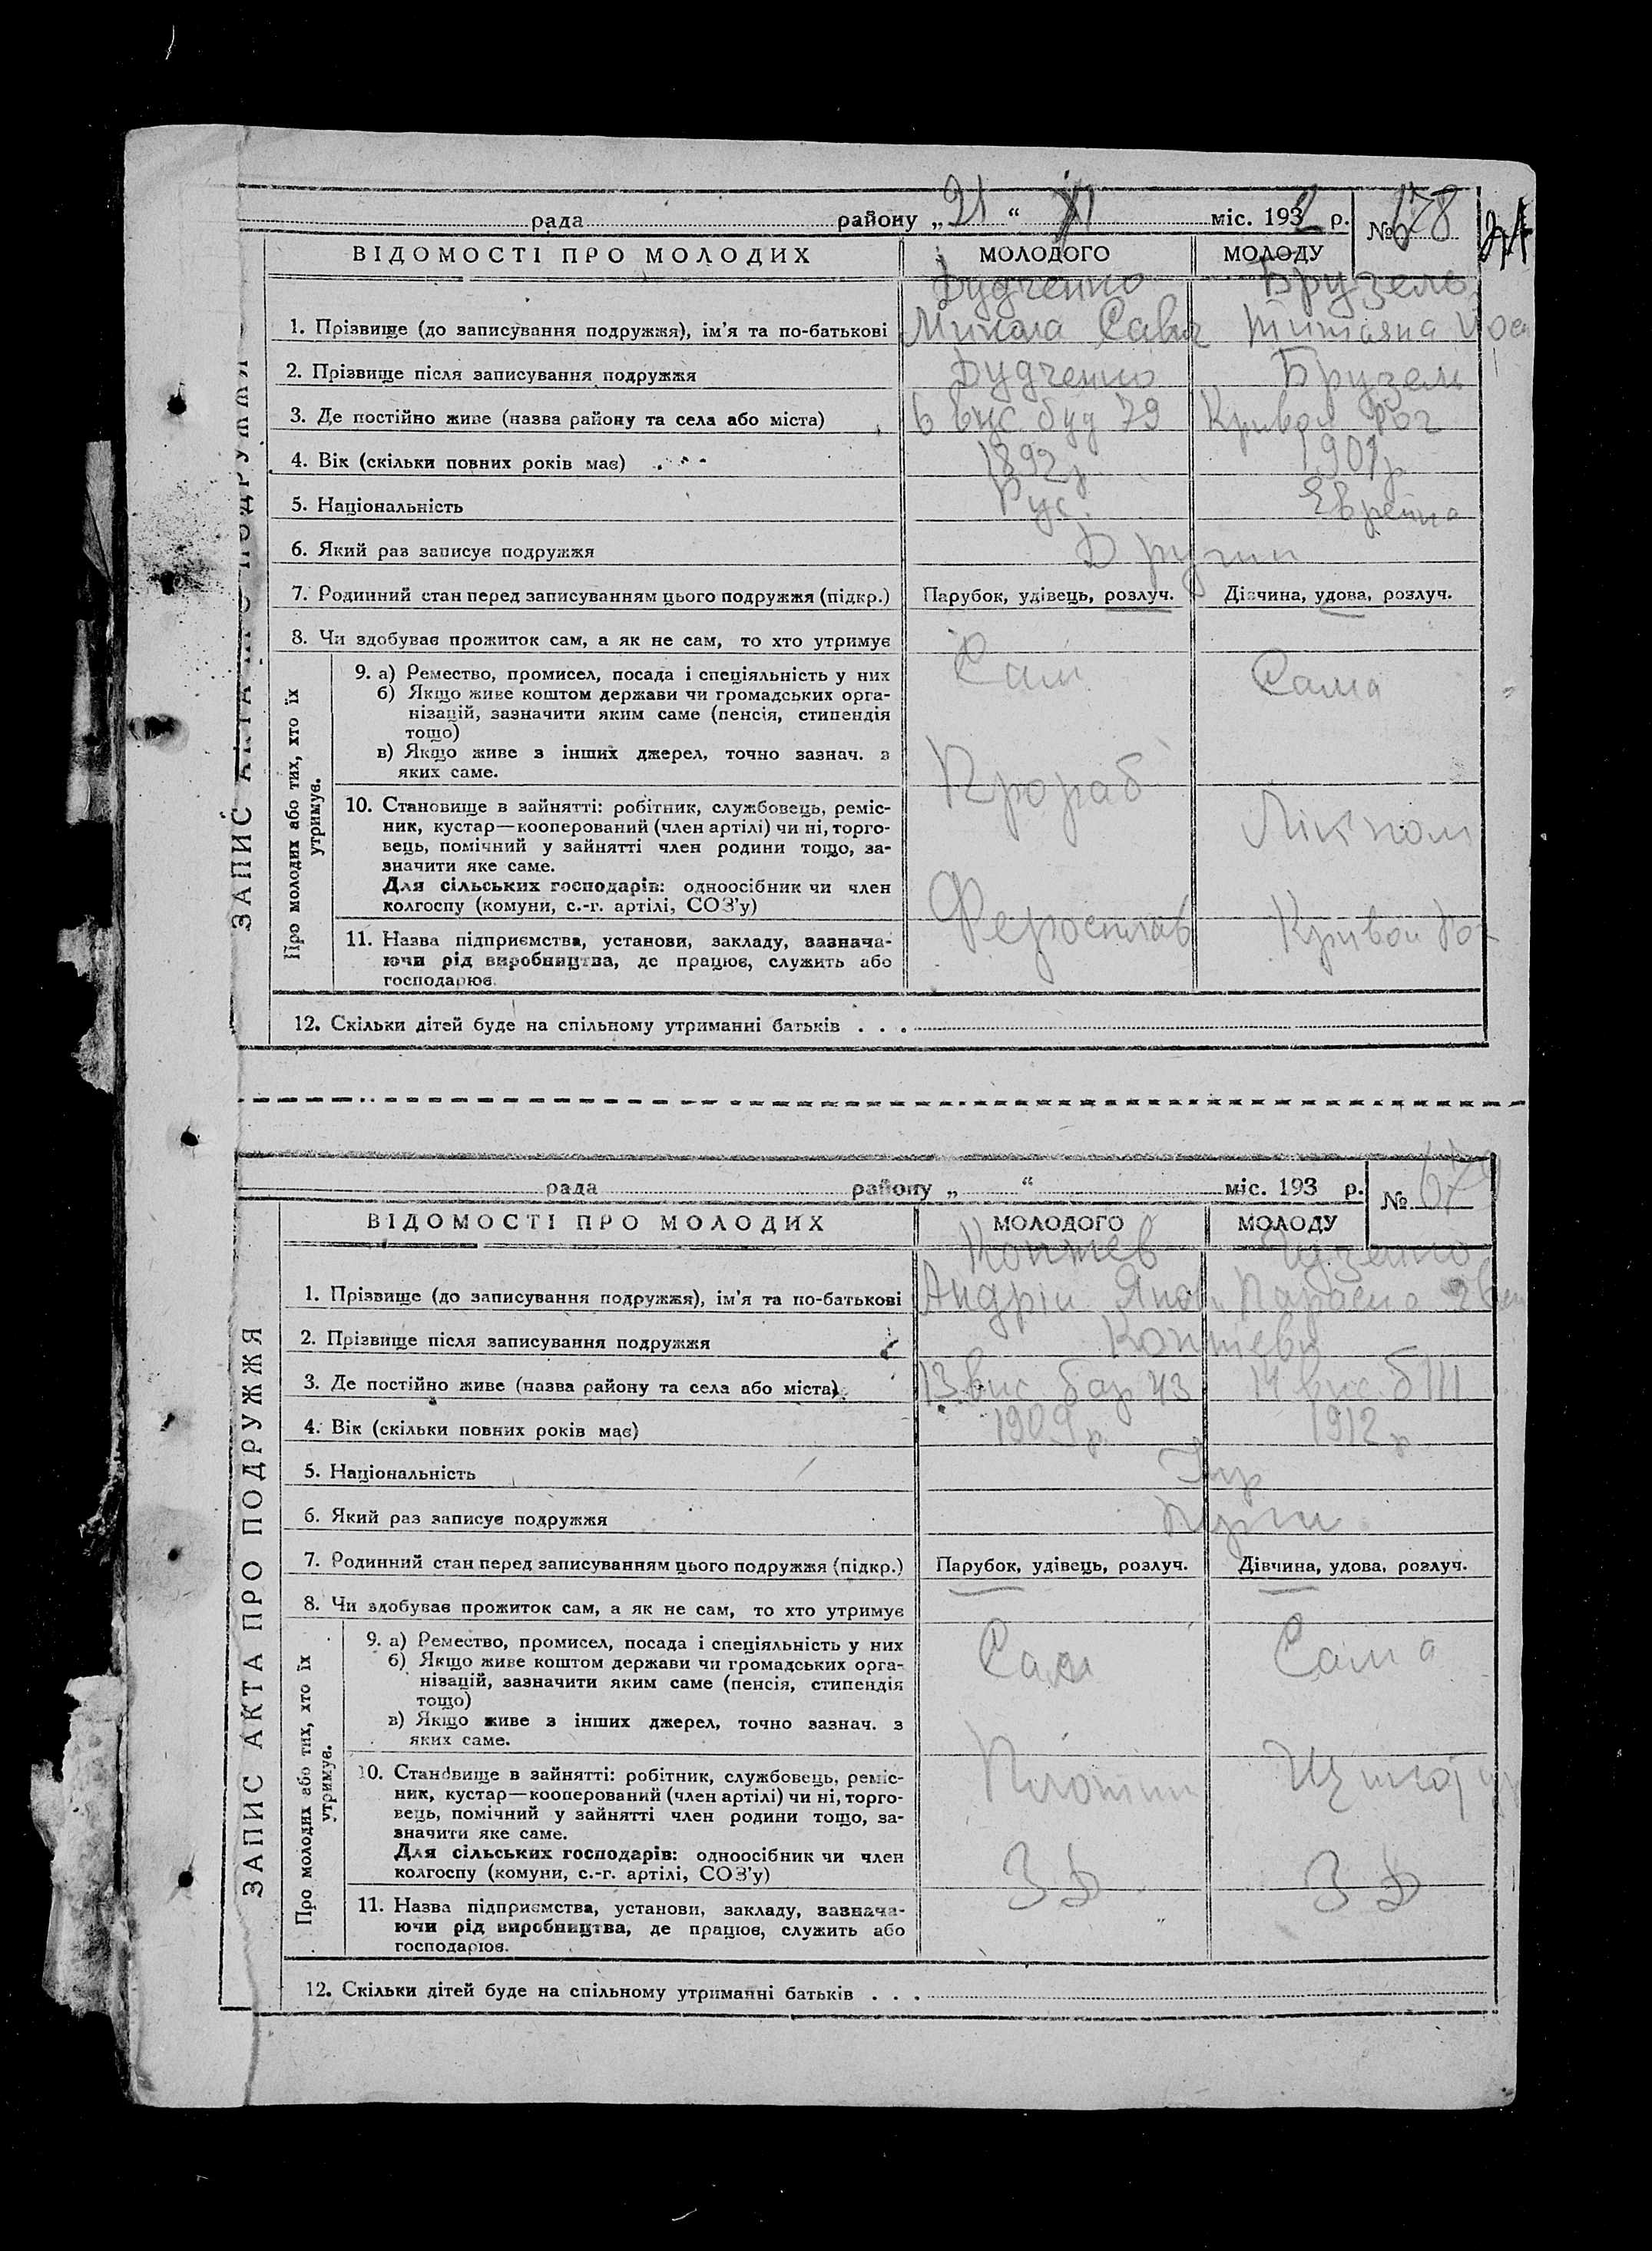 рада району „21“ XI міс. 1932 р. № 678
ВІДОМОСТІ ПРО МОЛОДИХ МОЛОДОГО МОЛОДУ
Дудченко Брузель
1. Прізвище (до записування подружжя), ім’я та по-батькові Микола Савич Титяна
2. Прізвище після записування подружжя Дудченко Брузель
3. Де постійно живе (назва району та села або міста) 6 вис буд 79 Кривой Рог
4. Вік (скільки повних років має) 1892 р 1901 р
5. Національність Рус. Еврейка
6. Який раз записує подружжя Другий
7. Родинний стан перед записуванням цього подружжя (підкр.) Парубок, удівець, розлуч. Дівчина, удова, розлуч.
8. Чи здобуває прожиток сам, а як не сам, то хто утримує Сам Сама
ЗАПИС АКТА ПРО ПОДРУЖЖЯ
Про молодих або тих, хто їх утримує.
9. а) Ремество, промисел, посада і спеціяльність у них
б) Якщо живе коштом держави чи громадських орга-
нізацій, зазначити яким саме (пенсія, стипендія
тощо)
в) Якщо живе з інших джерел, точно зазнач. з
яких саме.
Прораб
10. Становище в зайнятті: робітник, службовець, реміс-
ник, кустар—кооперований (член артілі) чи ні, торго-
вець, помічний у зайнятті член родини тощо, за-
значити яке саме.
Для сільських господарів: одноосібник чи член
колгоспу (комуни, с.-г. артілі, СОЗ’у)
Феросплав Кривой Рог
11. Назва підприємства, установи, закладу, зазнача-
ючи рід виробництва, де працює, служить або
господарює.
12. Скільки дітей буде на спільному утриманні батьків . . .
рада району „ “ міс. 193 р. № 679
ВІДОМОСТІ ПРО МОЛОДИХ МОЛОДОГО МОЛОДУ
1. Прізвище (до записування подружжя), ім’я та по-батькові Андрій
2. Прізвище після записування подружжя
3. Де постійно живе (назва району та села або міста) 13 вис бар 43 14 вис. б
4. Вік (скільки повних років має) 1909 р. 1912 р.
5. Національність Укр
6. Який раз записує подружжя
7. Родинний стан перед записуванням цього подружжя (підкр.) Парубок, удівець, розлуч. Дівчина, удова, розлуч.
8. Чи здобуває прожиток сам, а як не сам, то хто утримує Сам Сама
ЗАПИС АКТА ПРО ПОДРУЖЖЯ
Про молодих або тих, хто їх утримує.
9. а) Ремество, промисел, посада і спеціяльність у них
б) Якщо живе коштом держави чи громадських орга-
нізацій, зазначити яким саме (пенсія, стипендія
тощо)
в) Якщо живе з інших джерел, точно зазнач. з
яких саме.
10. Становище в зайнятті: робітник, службовець, реміс-
ник, кустар—кооперований (член артілі) чи ні, торго-
вець, помічний у зайнятті член родини тощо, за-
значити яке саме.
Для сільських господарів: одноосібник чи член
колгоспу (комуни, с.-г. артілі, СОЗ’у)
11. Назва підприємства, установи, закладу, зазнача-
ючи рід виробництва, де працює, служить або
господарює.
12. Скільки дітей буде на спільному утриманні батьків . . .